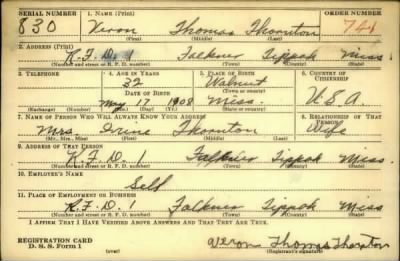 SERIAL NUMBER 1. NAME (Print) ORDER NUMBER
830 Veron Thomas Thornton 741
(First) (Middle) (Last)
2. ADDRESS (Print)
R.F.D. 1 Falkner Tippah Miss
(Number and street or R. F. D. number) (Town) (County) (State)
3. TELEPHONE 4. AGE IN YEARS 5. PLACE OF BIRTH 6. COUNTRY OF CITIZENSHIP
32 Walnut
DATE OF BIRTH (Town or county)
May 17 1908 Miss. U.S.A.
(Exchange) (Number) (Mo.) (Day) (Yr.) (State or country)
7. NAME OF PERSON WHO WILL ALWAYS KNOW YOUR ADDRESS 8. RELATIONSHIP OF THAT PERSON
Mrs. Irene Thornton Wife
(Mr., Mrs., Miss) (First) (Middle) (Last)
9. ADDRESS OF THAT PERSON
R.F.D. 1 Falkner Tippah Miss.
(Number and street or R. F. D. number) (Town) (County) (State)
10. EMPLOYER'S NAME
Self
11. PLACE OF EMPLOYMENT OR BUSINESS
R.F.D. 1 Falkner Tippah Miss
(Number and street or R. F. D. number) (Town) (County) (State)
I AFFIRM THAT I HAVE VERIFIED ABOVE ANSWERS AND THAT THEY ARE TRUE.
REGISTRATION CARD
D. S. S. FORM 1 Veron Thomas Thornton
(Registrant's signature)